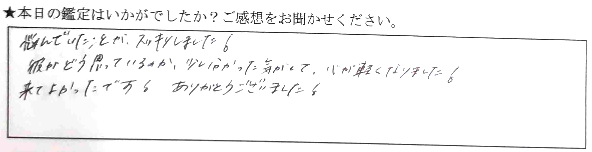 ★本日の鑑定はいかがでしたか？ご感想をお聞かせください。
悩んでいたことが、スッキリしました。
彼がどう思っているのか、少し分かった気がして、心が軽くなりました。
来てよかったです。ありがとうございました。